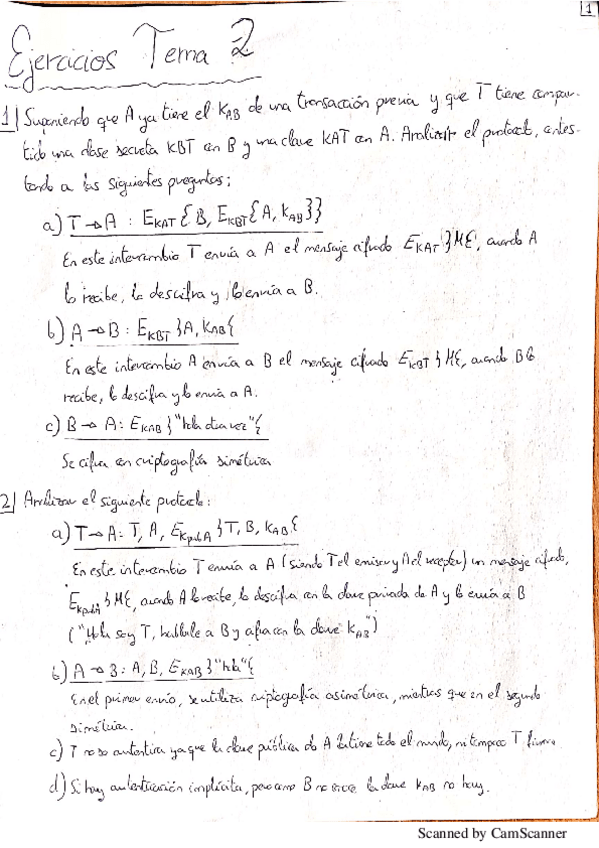 1
Ejercicios Tema 2
1| Suponiendo que A ya tiene el KAB de una transacción previa y que T tiene compar-
tido una clase secreta KBT con B y una clave KAT con A. Analizar el protocolo, contes-
tando a las siguientes preguntas:
a) T → A : EKAT { B, EKBT { A, KAB }}
En este intercambio T envía a A el mensaje cifrado EKAT }M{, cuando A
lo recibe, lo descifra y lo envía a B.
b) A → B : EKBT }A, KAB{
En este intercambio A envía a B el mensaje cifrado EKBT }M{, cuando B lo
recibe, lo descifra y lo envía a A.
c) B → A: EKAB }"hola otra vez"{
Se cifra con criptografía simétrica
2| Analizar el siguiente protocolo:
a) T → A: T, A, EKpubA }T, B, KAB{
En este intercambio T envía a A (siendo T el emisor y A el receptor) un mensaje cifrado,
EKpubA }M{, cuando A lo recibe, lo descifra con la clave privada de A y lo envía a B
("Hola soy T, hablale a B y cifra con la clave KAB")
b) A → B : A, B, EKAB }"hola"{
En el primer envío, se utiliza criptografía asimétrica, mientras que en el segundo
simétrica.
c) T no se autentica ya que la clave pública de A la tiene todo el mundo, ni tampoco T firma
d) Si hay autenticación implícita, pero como B no conoce la clave KAB no hay.
Scanned by CamScanner